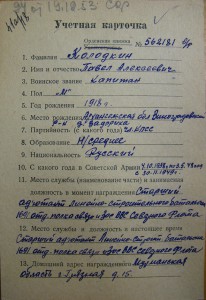 19.10.53 СФР
Учетная карточка
Орденская книжка
№ 562181 б/р
1. Фамилия Колодкин
2. Имя и отчество Павел Алексеевич
3. Воинское звание капитан
4. Пол "М"
5. Год рождения 1918 г.
6. Место рождения
7. Партийность (с какого года) чл. КПСС
8. Образование Н/среднее
9. Национальность Русский
10. С какого года в Советской Армии
с 30.11.1949 г.
11. Место службы (наименование части) и занимаемая
должность в момент награждения Старший
адъютант Линейно-строительного батальона
1641 отд. полка связи ВВС Северного флота
12. Место службы и должность в настоящее время
Старший адъютант Линейно-строит. батальона
1641 отд. полка связи ВВС Северного флота
13. Домашний адрес награжденного Мурманская
область г. Грязная д. 15.